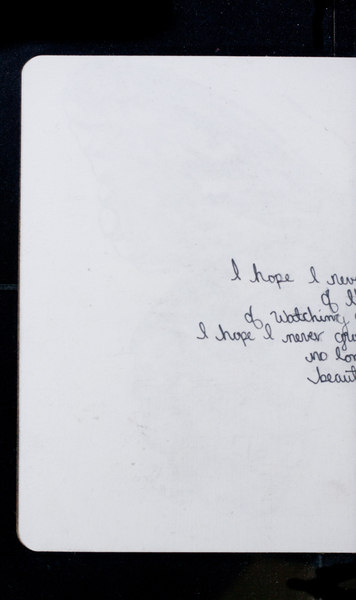 I hope I neve
of li
of watching
I hope I never gro
no lon
beaut